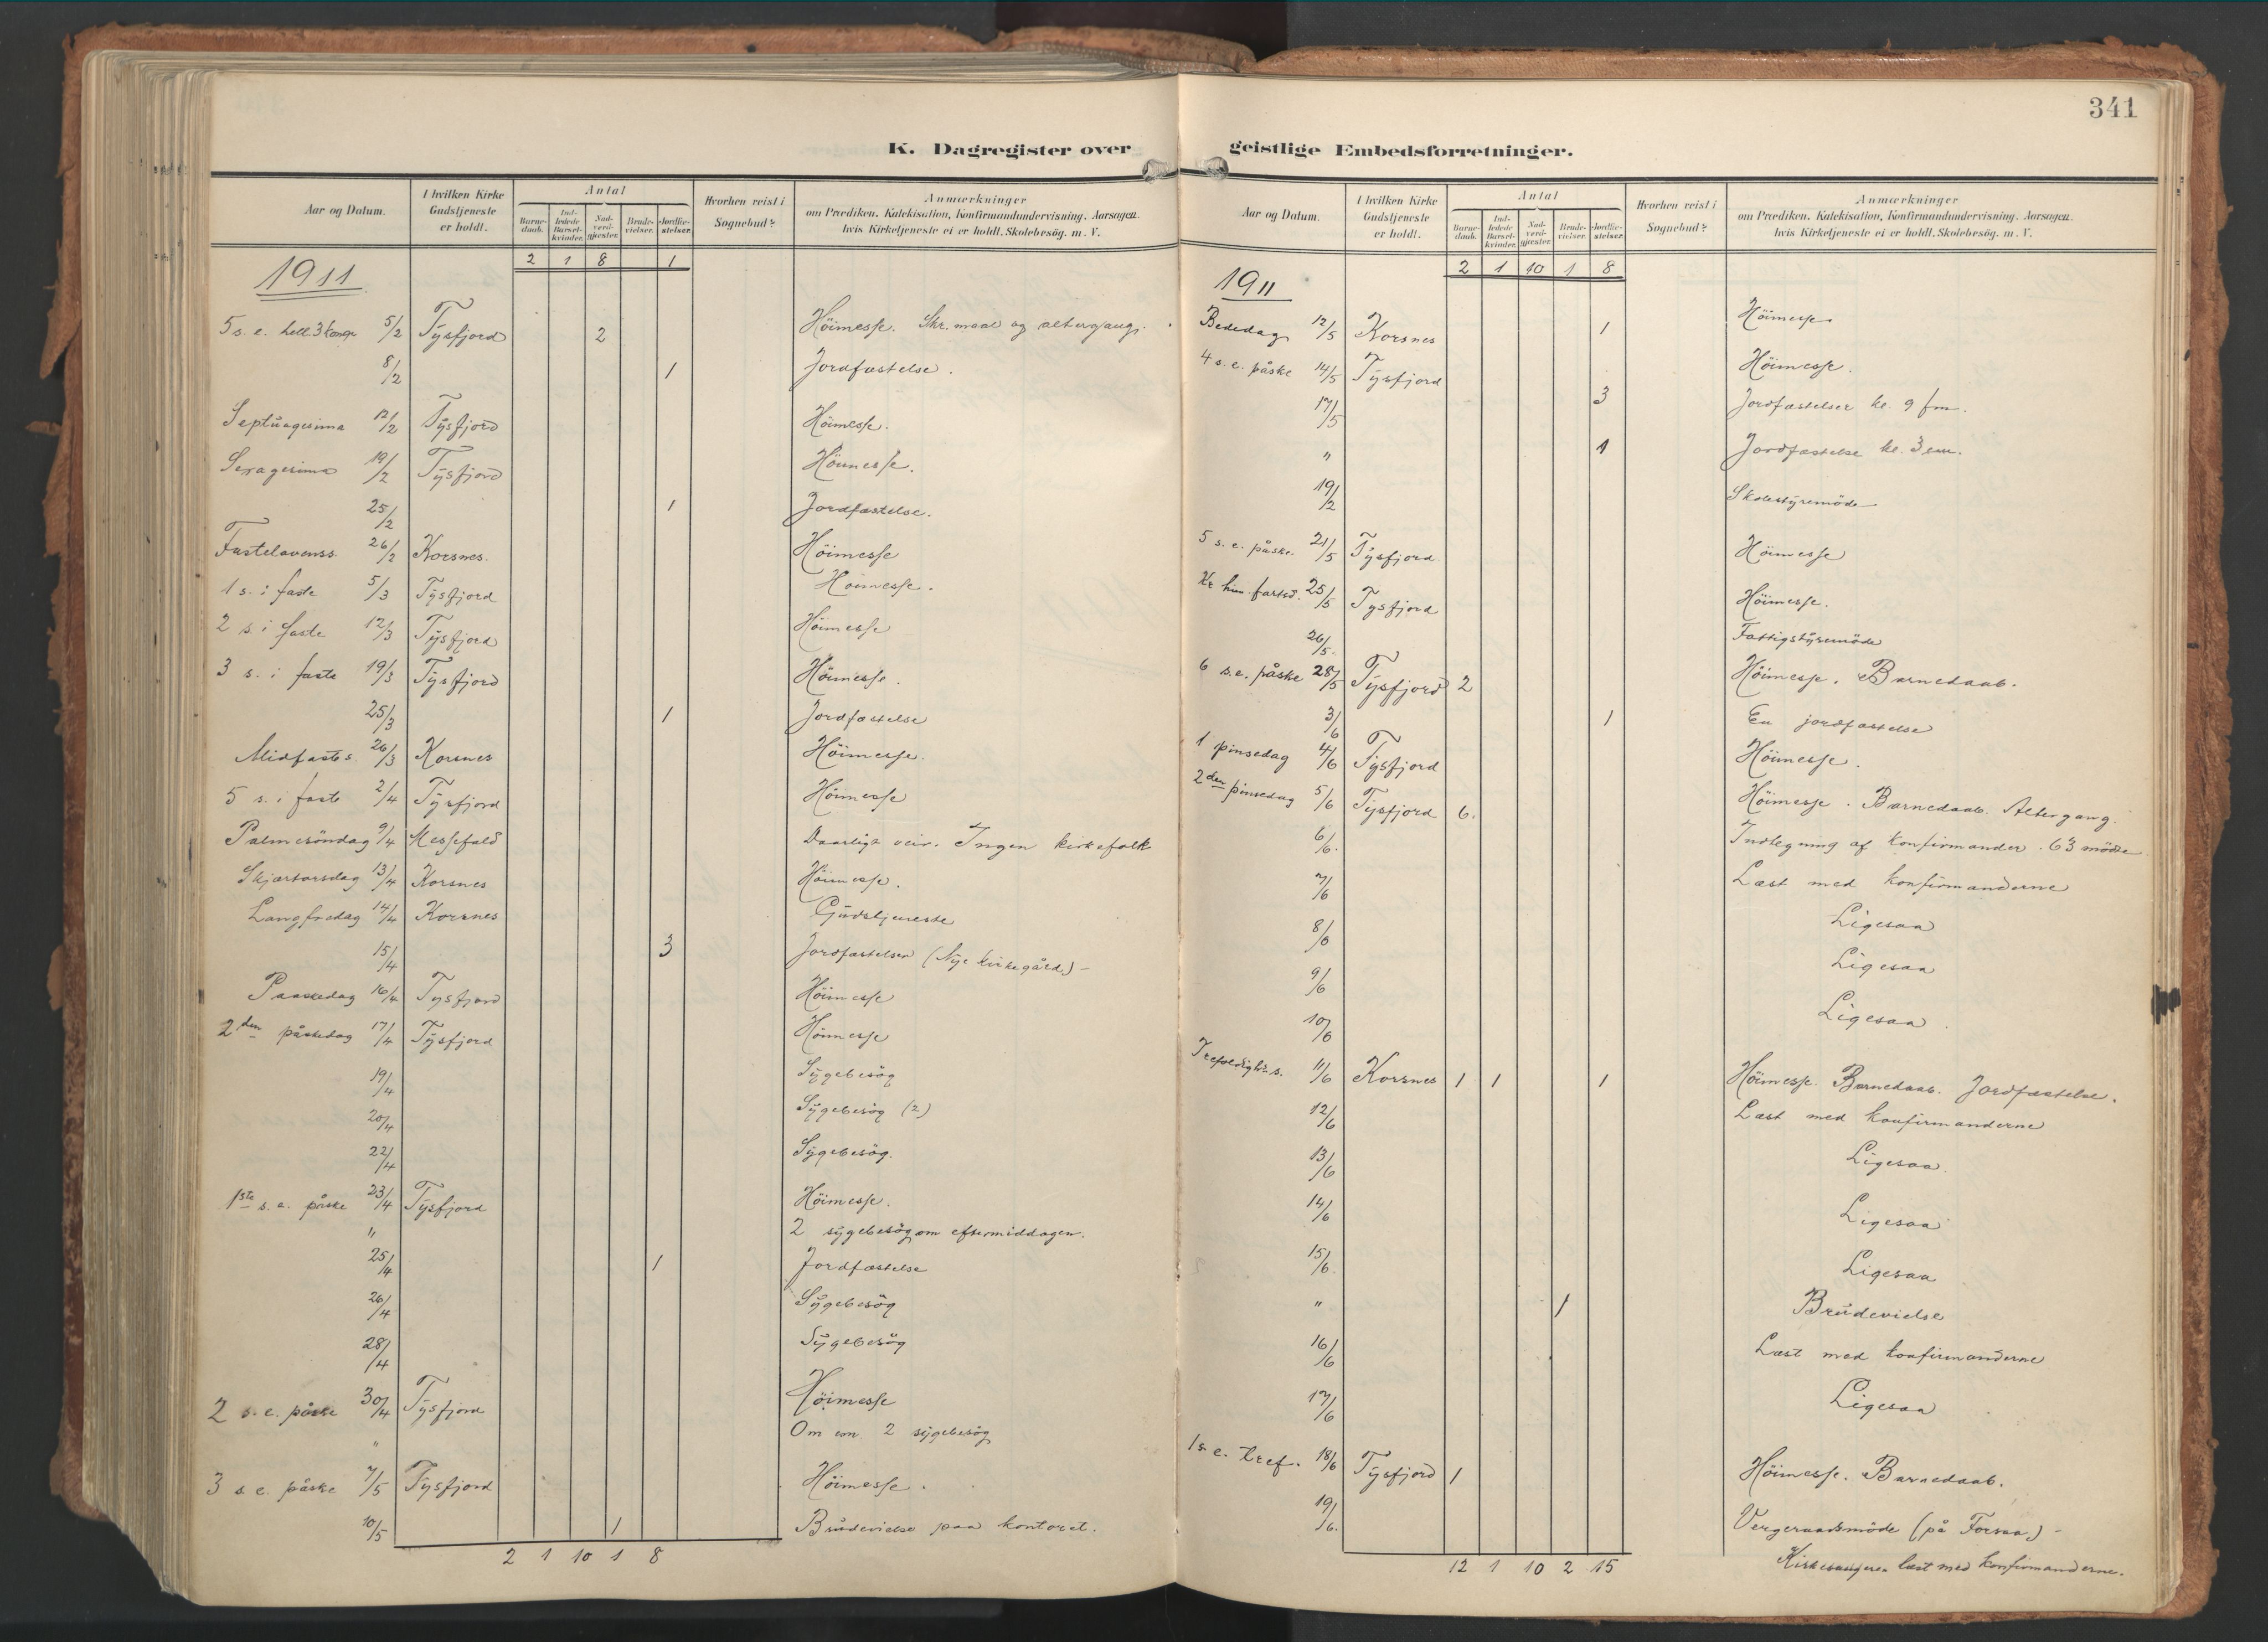 341
K. Dagregister over geistlige Embedsforretninger.
Aar og Datum. | I hvilken Kirke Gudstjeneste er holdt. | Antal | Barnedaab. | Indledede Barselkvinder. | Nadverdgjester. | Brudevielser. | Jordfæstelser. | Hvorhen reist i Sognebud? | Anmærkninger om Prædiken, Katekisation, Konfirmandundervisning, Aarsagen hvis Kirketjeneste ei er holdt, Skolebesøg. m. V.
2 1 8 1
1911
5 s. e. hell. 3 kong. 5/2 Tysfjord 2 Höimesse. Skr.maal og altergang.
8/2 1 Jordfæstelse.
Septuagesima 12/2 Tysfjord Höimesse.
Sexagesima 19/2 Tysfjord Höimesse.
25/2 1 Jordfæstelse.
Fastelavenss. 26/2 Korsnes. Höimesse
1 s. i faste 5/3 Tysfjord Höimesse.
2 s. i faste 12/3 Tysfjord Höimesse
3 s. i faste 19/3 Tysfjord Höimesse.
25/3 1 Jordfæstelse
Midfastes. 26/3 Korsnes Höimesse.
5 s. i faste 2/4 Tysfjord Höimesse
Palmesöndag 9/4 Messefald Daarligt veir. Ingen kirkefolk
Skjærtorsdag 13/4 Korsnes Höimesse.
Langfredag 14/4 Korsnes Gudstjeneste
15/4 3 Jordfæstelser (Nye kirkegård.) -
Paaskedag 16/4 Tysfjord Höimesse
2den påskedag 17/4 Tysfjord Höimesse
19/4 Sygebesög
20/4 Sygebesög (2)
22/4 Sygebesög.
1ste s. e. påske 23/4 Tysfjord Höimesse.
" 2 sygebesög om eftermiddagen.
25/4 1 Jordfæstelse
26/4 Sygebesög
28/4 Sygebesög
2 s. e. påske 30/4 Tysfjord Höimesse
" Om em. 2 sygebesög
3 s e. påske 7/5 Tysfjord Höimesse.
10/5 1 Brudevielse paa kontoret.
2 1 10 1 8
Aar og Datum. | I hvilken Kirke Gudstjeneste er holdt. | Antal | Barnedaab. | Indledede Barselkvinder. | Nadverdgjester. | Brudevielser. | Jordfæstelser. | Hvorhen reist i Sognebud? | Anmærkninger om Prædiken, Katekisation, Konfirmandundervisning, Aarsagen hvis Kirketjeneste ei er holdt, Skolebesøg. m. V.
2 1 10 1 8
1911
Bededag 12/5 Korsnes 1 Höimesse
4 s. e. påske 14/5 Tysfjord Höimesse.
17/5 3 Jordfæstelser kl. 9 fm.
" 1 Jordfæstelse kl. 3 em.
19/2 Skolestyremöde
5 s. e. påske. 21/5 Tysfjord Höimesse
Kr. him. fartsd. 25/5 Tysfjord Höimesse.
26/5. Fattigstyremöde
6 s. e. påske 28/5 Tysfjord 2 Höimesse. Barnedaab.
3/6 1 En jordfæstelse
1 pinsedag 4/6 Tysfjord Höimesse.
2den pinsedag 5/6 Tysfjord 6. Höimesse. Barnedaab. Altergang.
6/6. Indlegning af konfirmander. 63 mödte
7/6 Læst med konfirmanderne
8/6 Ligesaa
9/6 Ligesaa
10/6 Ligesaa.
Trefoldigh. s. 11/6 Korsnes 1 1 1 Höimesse. Barnedaab. Jordfæstelse.
12/6 Læst med konfirmanderne
13/6 Ligesaa.
14/6 Ligesaa
15/6. Ligesaa
" 1 Brudevielse
16/6 Læst med konfirmanderne
17/6 Ligesaa
1 s. e. tref. 18/6 Tysfjord 1 Höimesse. Barnedaab.
19/6. Vergeraadsmöde (på Forsaa.) -
Kirkesangeren læst med konfirmanderne.
12 1 10 2 15